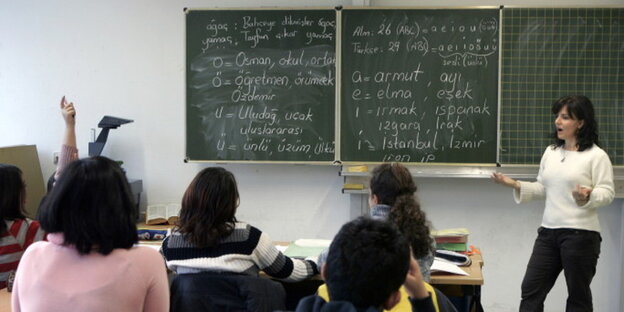 ağaç : Bahçeye dikmişler ağaç
yamaç : Tayfun çıkar yamaç
O = Osman, okul, orta
Ö = Öğretmen, örümcek
Özdemir
U = Uludağ, uçak
uluslararası
Ü = ünlü, üzüm,
Alm: 26 (ABC) = a e i o u
Türkçe: 29 (ABC) = a e ı i o ö u ü
sesli (ünlü)
a = armut, ayı
e = elma, eşek
ı = ırmak, ıspanak
ızgara, Irak
i = İstanbul, İzmir